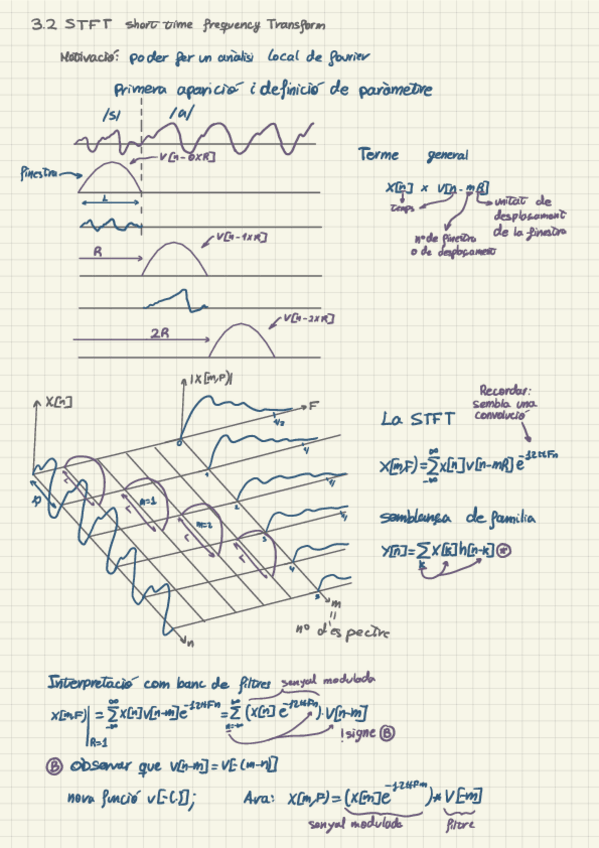 3.2 STFT short time frequency Transform
Motivació: poder fer un anàlisi local de fourier
Primera aparició i definició de paràmetre
/s/ /a/
V[n-0xR]
finestra
L
R
V[n-1xR]
2R
V[n-2xR]
Terme general
X[n] x V[n-mR]
temps
unitat de
desplaçament
de la finestra
nº de finestra
o de desplaçament
X[n]
|X(m,F)|
F
1/2
0
1
2
3
4
5
R
L
L
L
L
m=1
m=2
n
m
=
nº d'espectre
Recordar:
sembla una
convolució
La STFT
X(m,F)=∑x[n]v[n-mR]e^-j2πFn
∞
-∞
semblança de familia
Y[n]=∑X[k]h[n-k] *
k
Interpretació com banc de filtres
senyal modulada
X(m,F)|R=1 = ∑x[n]v[n-m]e^-j2πFn = ∑(x[n]e^-j2πFn)·V[n-m]
! signe B
B observar que v[n-m]=v[-(m-n)]
nova funció v[-(·)]; Ara: X(m,F)=(X[m]e^-j2πFm)*V[-m]
senyal modulada
filtre